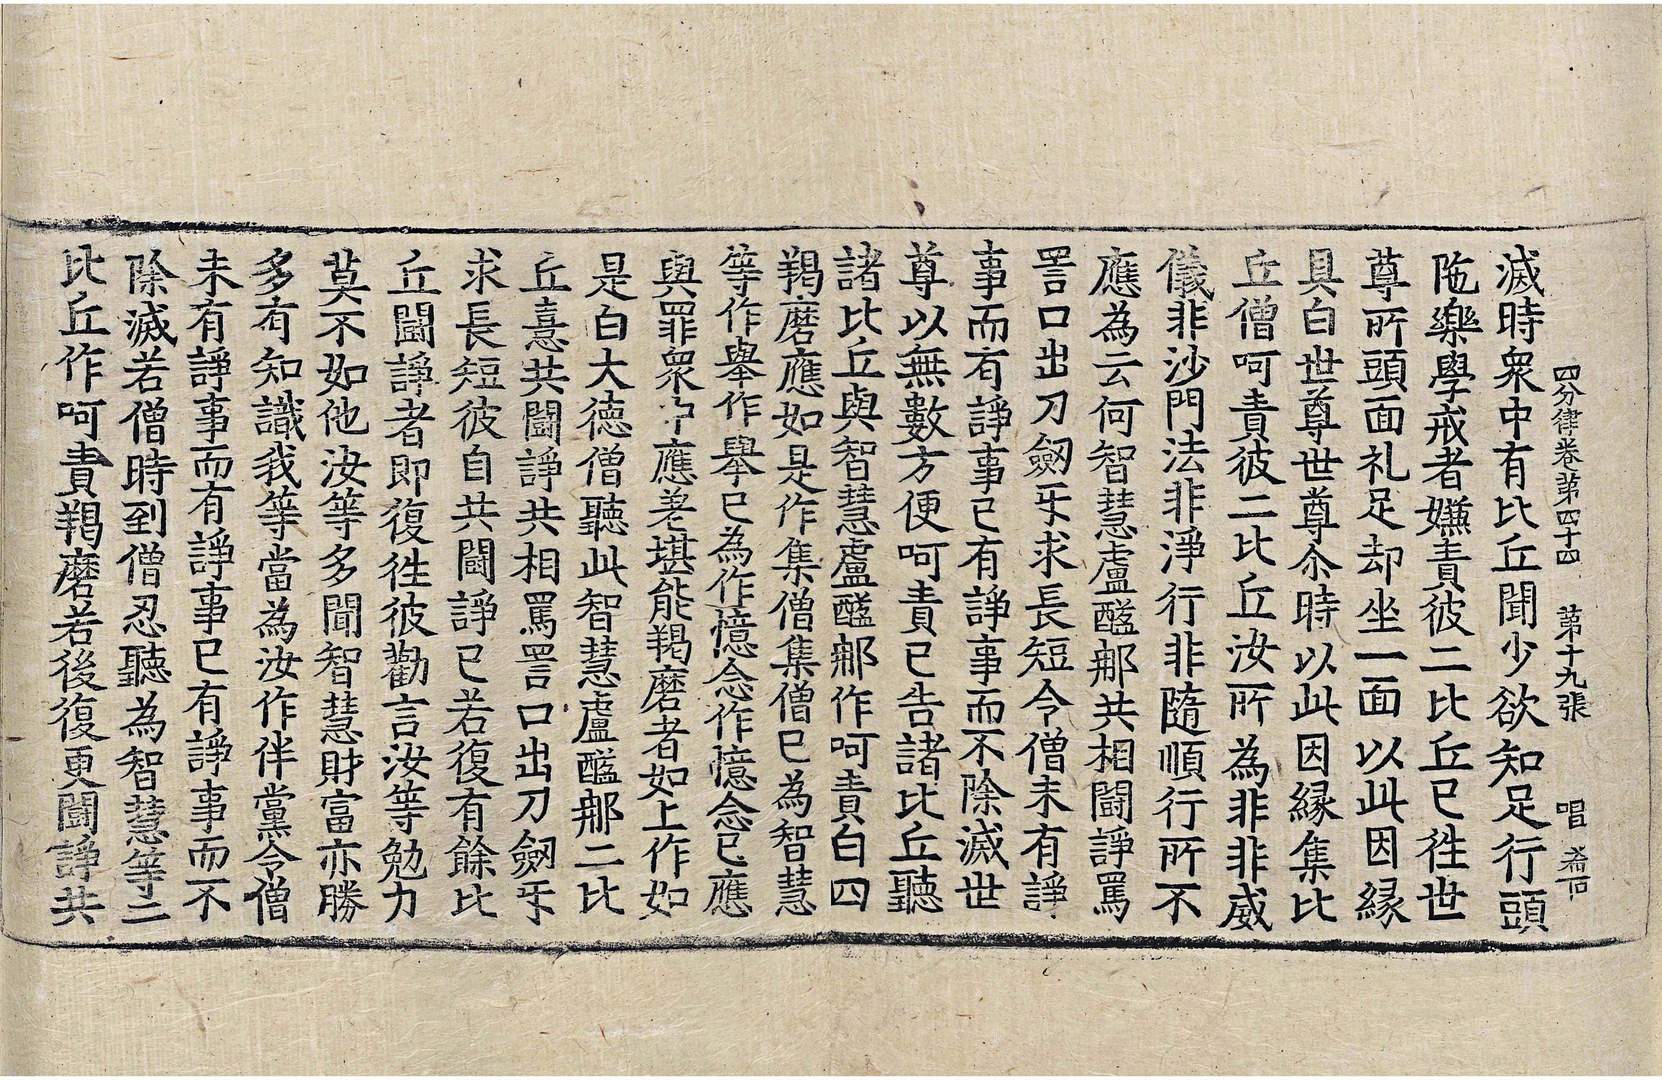 四分律卷第四十四 第十九張 唱
滅時衆中有比丘聞少欲知足行頭
陁樂學戒者嫌責彼二比丘已徃世
尊所頭面礼足却坐一面以此因緣
具白世尊世尊尒時以此因縁集比
丘僧呵責彼二比丘汝所為非非威
儀非沙門法非淨行非隨順行所不
應為云何智慧盧醯𨚗共相鬪諍罵
詈口出刀劒牙求長短令僧未有諍
事而有諍事已有諍事而不除滅世
尊以無數方便呵責已告諸比丘聽
諸比丘與智慧盧醯𨚗作呵責白四
羯磨應如是作集僧集僧已為智慧
等作舉作舉已為作憶念作憶念已應
與罪衆中應差堪能羯磨者如上作如
是白大德僧聽此智慧盧醯𨚗二比
丘憙共鬪諍共相罵詈口出刀劒牙
求長短彼自共鬪諍已若復有餘比
丘鬪諍者即復徃彼勸言汝等勉力
莫不如他汝等多聞智慧財富亦勝
多有知識我等當為汝作伴黨令僧
未有諍事而有諍事已有諍事而不
除滅若僧時到僧忍聽為智慧等二
比丘作呵責羯磨若後復更鬪諍共